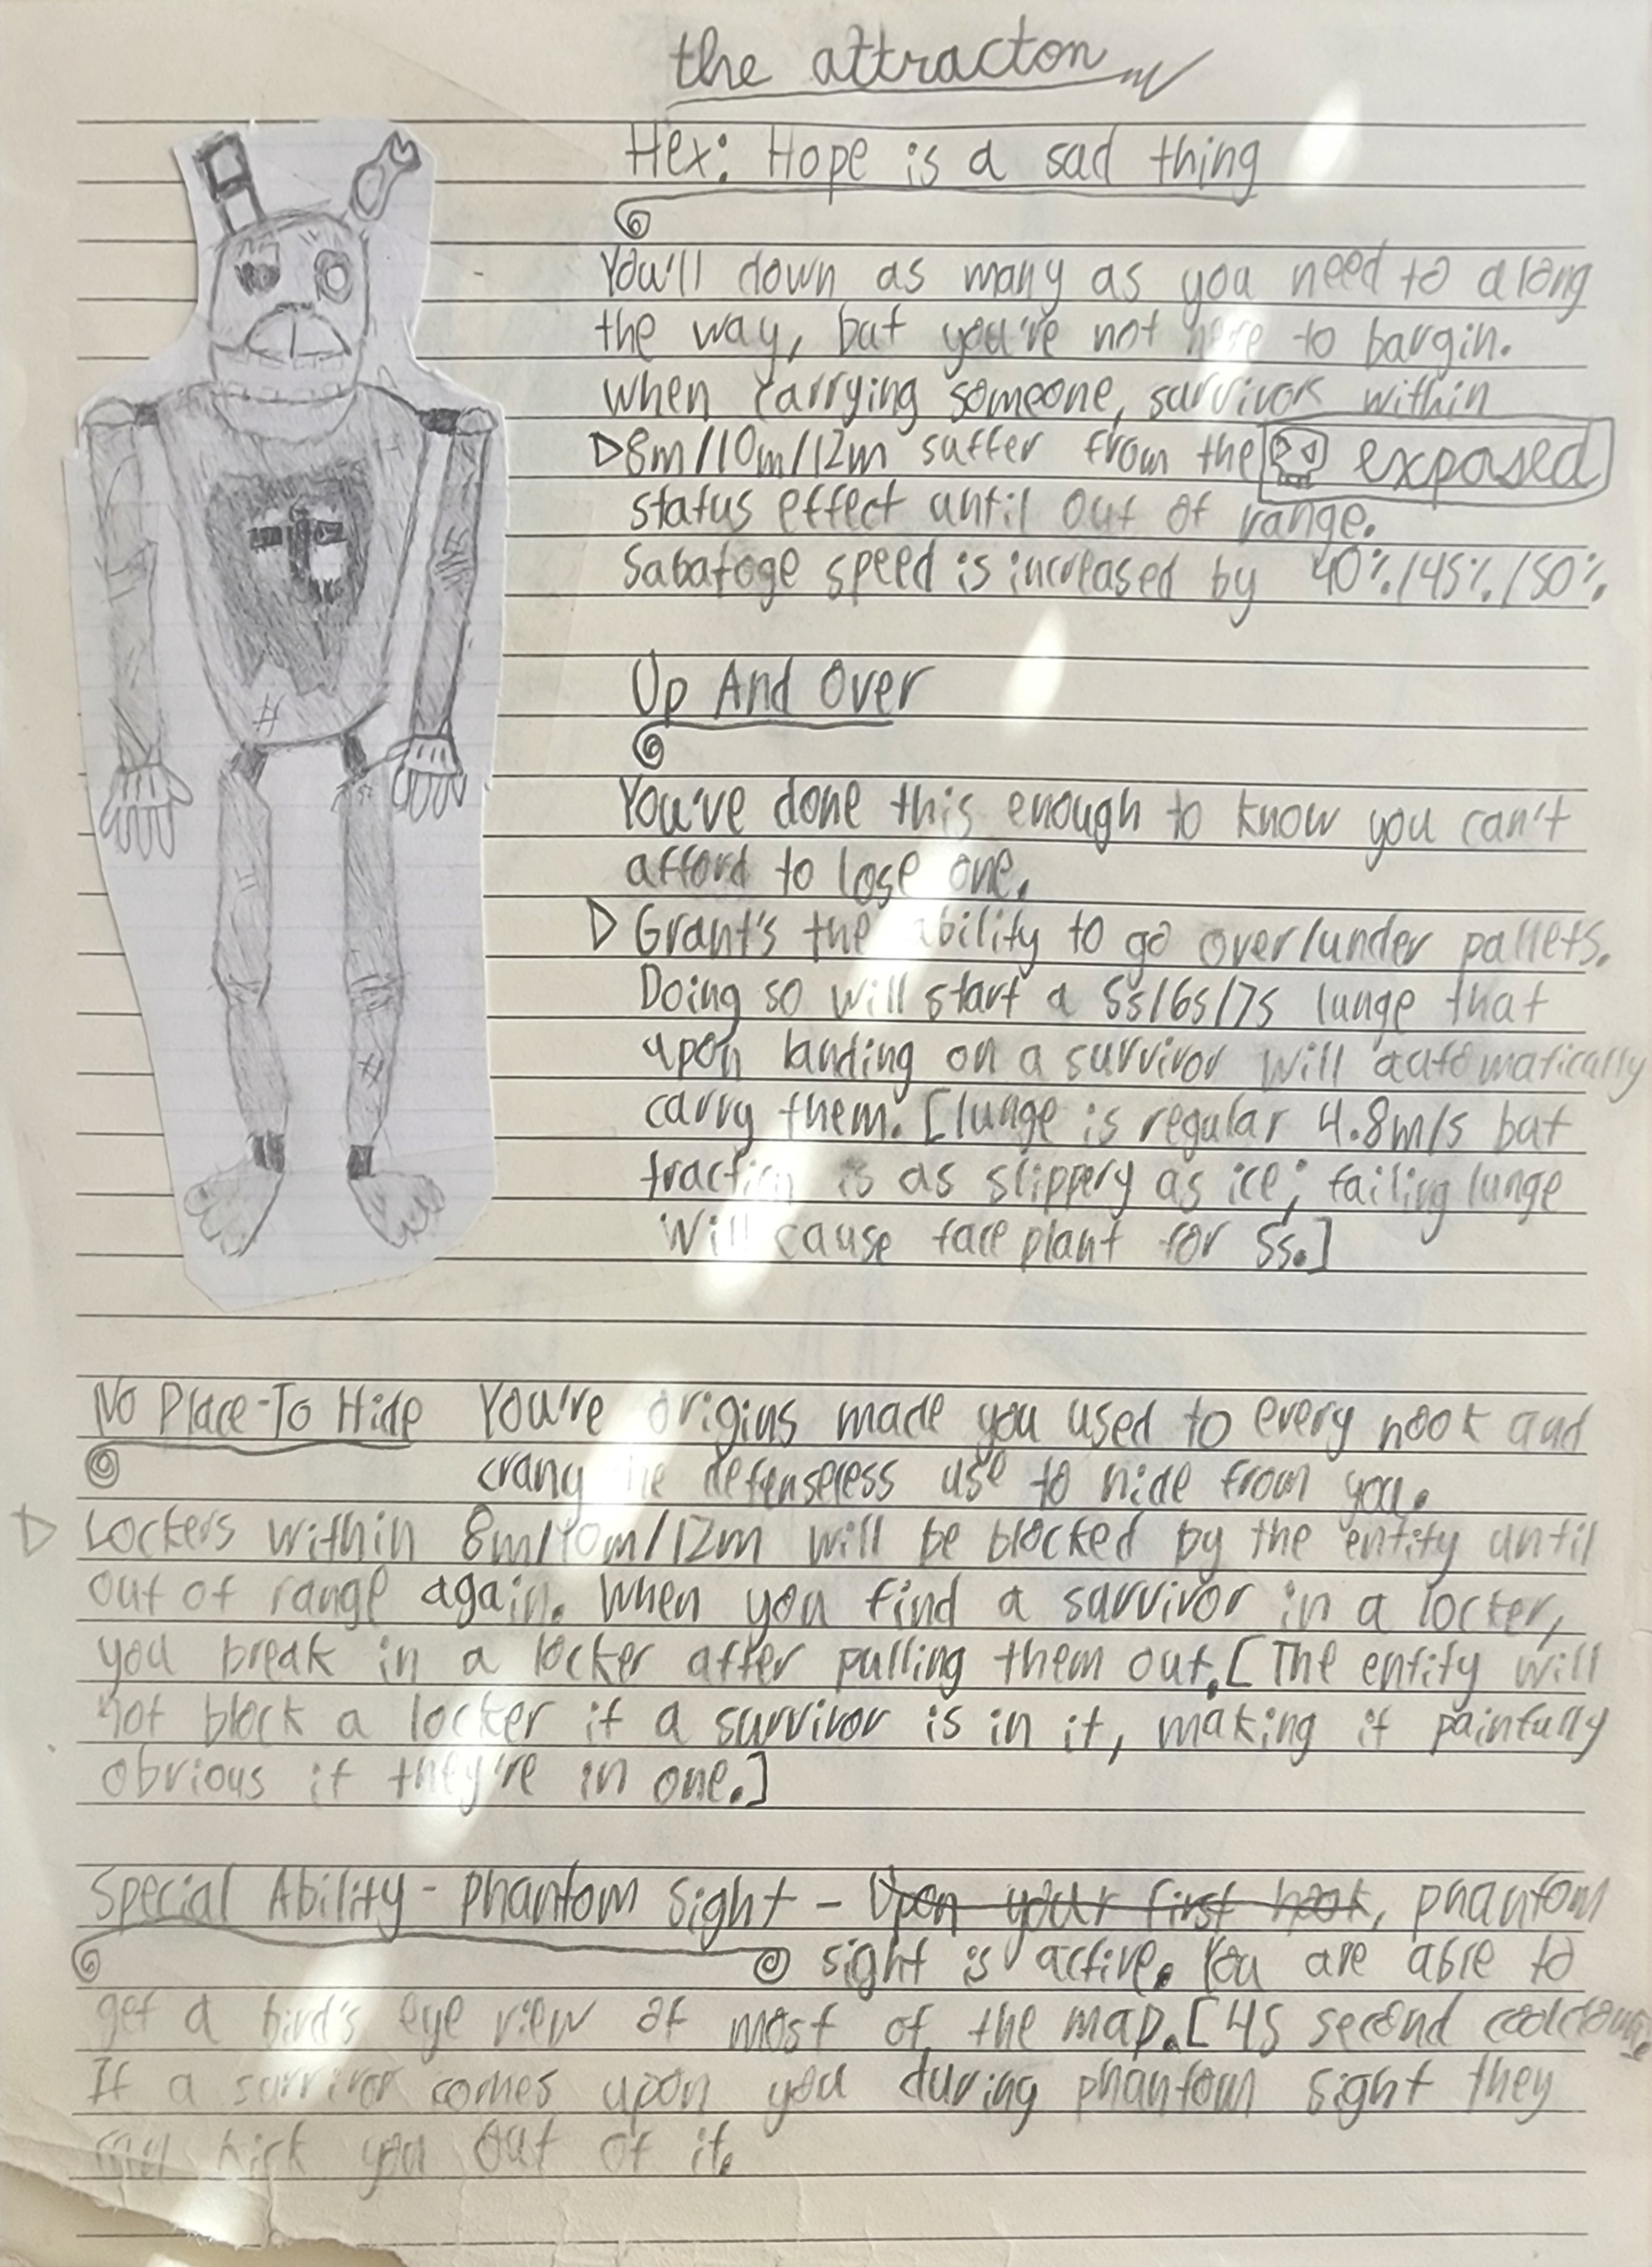 the attracton
Hex: Hope is a sad thing
You'll down as many as you need to along
the way, but you're not here to bargin.
when carrying someone, survivors within
8m/10m/12m suffer from the exposed
status effect until out of range.
Sabatoge speed is increased by 40%/45%/50%.
Up And Over
You've done this enough to know you can't
afford to lose one.
Grant's the ability to go over/under pallets.
Doing so will start a 5s/6s/7s lunge that
upon landing on a survivor will automatically
carry them. [lunge is regular 4.8m/s but
traction is as slippery as ice; failing lunge
will cause face plant for 5s.]
No Place-To Hide You're origins made you used to every nook and
crany the defenseless use to hide from you.
Lockers within 8m/10m/12m will be blocked by the entity until
out of range again. When you find a survivor in a locker,
you break in a locker after pulling them out. [The entity will
not block a locker if a survivor is in it, making it painfully
obvious if they're in one.]
Special Ability - Phantom Sight - Upon your first hook, phantom
sight is active. You are able to
get a bird's eye view of most of the map. [45 second cooldown.
If a survivor comes upon you during phantom sight they
kick you out of it.